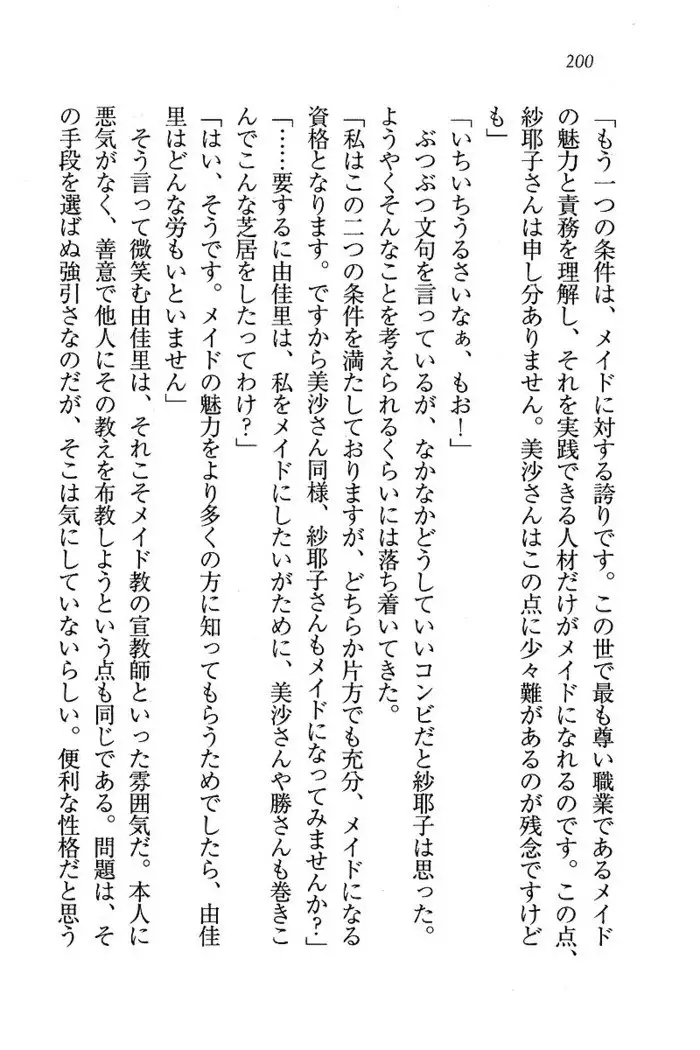 200
「もう一つの条件は、メイドに対する誇りです。この世で最も尊い職業であるメイド
の魅力と責務を理解し、それを実践できる人材だけがメイドになれるのです。この点、
紗耶子さんは申し分ありません。美沙さんはこの点に少々難があるのが残念ですけど
も」
「いちいちうるさいなぁ、もお！」
ぶつぶつ文句を言っているが、なかなかどうしていいコンビだと紗耶子は思った。
ようやくそんなことを考えられるくらいには落ち着いてきた。
「私はこの二つの条件を満たしておりますが、どちらか片方でも充分、メイドになる
資格となります。ですから美沙さん同様、紗耶子さんもメイドになってみませんか？」
「……要するに由佳里は、私をメイドにしたいがために、美沙さんや勝さんも巻きこ
んでこんな芝居をしたってわけ？」
「はい、そうです。メイドの魅力をより多くの方に知ってもらうためでしたら、由佳
里はどんな労もいといません」
そう言って微笑む由佳里は、それこそメイド教の宣教師といった雰囲気だ。本人に
悪気がなく、善意で他人にその教えを布教しようという点も同じである。問題は、そ
の手段を選ばぬ強引さなのだが、そこは気にしていないらしい。便利な性格だと思う